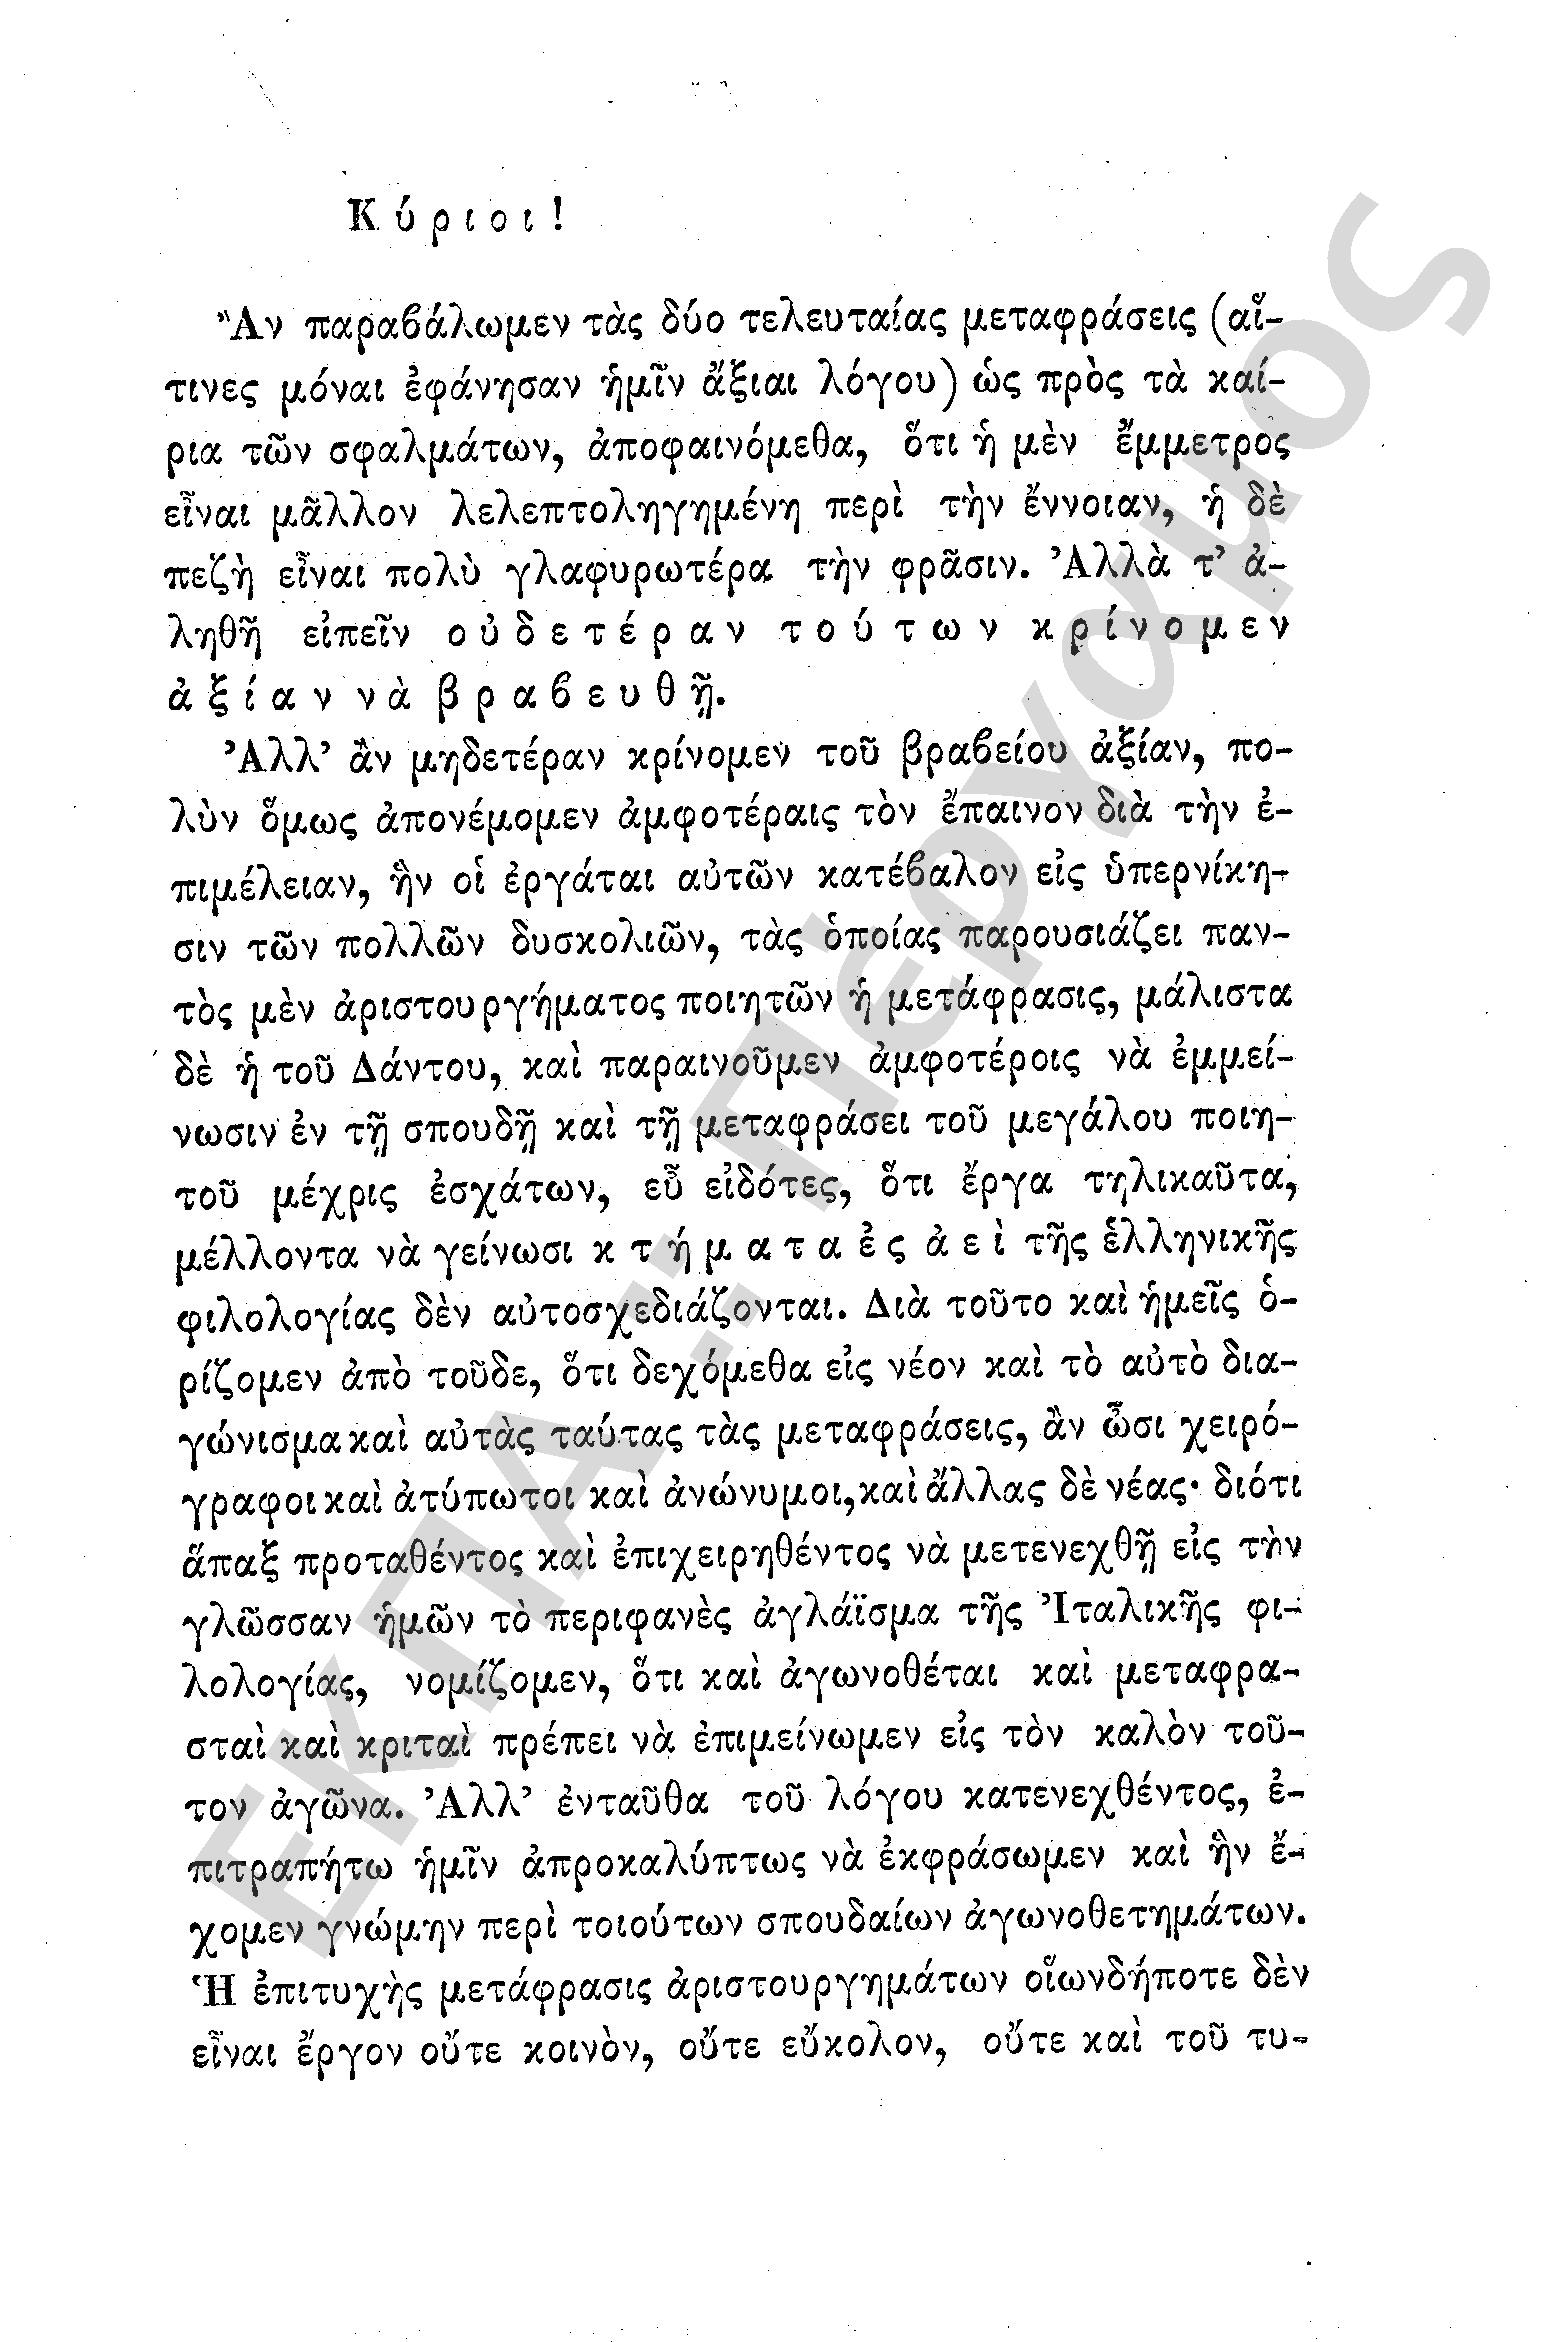 Κύριοι!
Ἂν παραβάλωμεν τὰς δύο τελευταίας μεταφράσεις (αἵ-
τινες μόναι ἐφάνησαν ἡμῖν ἄξιαι λόγου) ὡς πρὸς τὰ καί-
ρια τῶν σφαλμάτων, ἀποφαινόμεθα, ὅτι ἡ μὲν ἔμμετρος
εἶναι μᾶλλον λελεπτοληγημένη περὶ τὴν ἔννοιαν, ἡ δὲ
πεζὴ εἶναι πολὺ γλαφυρωτέρα τὴν φρᾶσιν. Ἀλλὰ τ’ ἀ-
ληθῆ εἰπεῖν οὐδετέραν τούτων κρίνομεν
ἀξίαν νὰ βραβευθῇ.
Ἀλλ’ ἂν μηδετέραν κρίνομεν τοῦ βραβείου ἀξίαν, πο-
λὺν ὅμως ἀπονέμομεν ἀμφοτέραις τὸν ἔπαινον διὰ τὴν ἐ-
πιμέλειαν, ἣν οἱ ἐργάται αὐτῶν κατέβαλον εἰς ὑπερνίκη-
σιν τῶν πολλῶν δυσκολιῶν, τὰς ὁποίας παρουσιάζει παν-
τὸς μὲν ἀριστουργήματος ποιητῶν ἡ μετάφρασις, μάλιστα
δὲ ἡ τοῦ Δάντου, καὶ παραινοῦμεν ἀμφοτέροις νὰ ἐμμεί-
νωσιν ἐν τῇ σπουδῇ καὶ τῇ μεταφράσει τοῦ μεγάλου ποιη-
τοῦ μέχρις ἐσχάτων, εὖ εἰδότες, ὅτι ἔργα τηλικαῦτα,
μέλλοντα νὰ γείνωσι κτήματα ἐς ἀεὶ τῆς ἑλληνικῆς
φιλολογίας δὲν αὐτοσχεδιάζονται. Διὰ τοῦτο καὶ ἡμεῖς ὁ-
ρίζομεν ἀπὸ τοῦδε, ὅτι δεχόμεθα εἰς νέον καὶ τὸ αὐτὸ δια-
γώνισμα καὶ αὐτὰς ταύτας τὰς μεταφράσεις, ἂν ὦσι χειρό-
γραφοι καὶ ἀτύπωτοι καὶ ἀνώνυμοι, καὶ ἄλλας δὲ νέας· διότι
ἅπαξ προταθέντος καὶ ἐπιχειρηθέντος νὰ μετενεχθῇ εἰς τὴν
γλῶσσαν ἡμῶν τὸ περιφανὲς ἀγλάϊσμα τῆς Ἰταλικῆς φι-
λολογίας, νομίζομεν, ὅτι καὶ ἀγωνοθέται καὶ μεταφρα-
σταὶ καὶ κριταὶ πρέπει νὰ ἐπιμείνωμεν εἰς τὸν καλὸν τοῦ-
τον ἀγῶνα. Ἀλλ’ ἐνταῦθα τοῦ λόγου κατενεχθέντος, ἐ-
πιτραπήτω ἡμῖν ἀπροκαλύπτως νὰ ἐκφράσωμεν καὶ ἣν ἔ-
χομεν γνώμην περὶ τοιούτων σπουδαίων ἀγωνοθετημάτων.
Ἡ ἐπιτυχὴς μετάφρασις ἀριστουργημάτων οἵωνδήποτε δὲν
εἶναι ἔργον οὔτε κοινὸν, οὔτε εὔκολον, οὔτε καὶ τοῦ τυ-
ΕΚΠΑ:: Πέργαμος